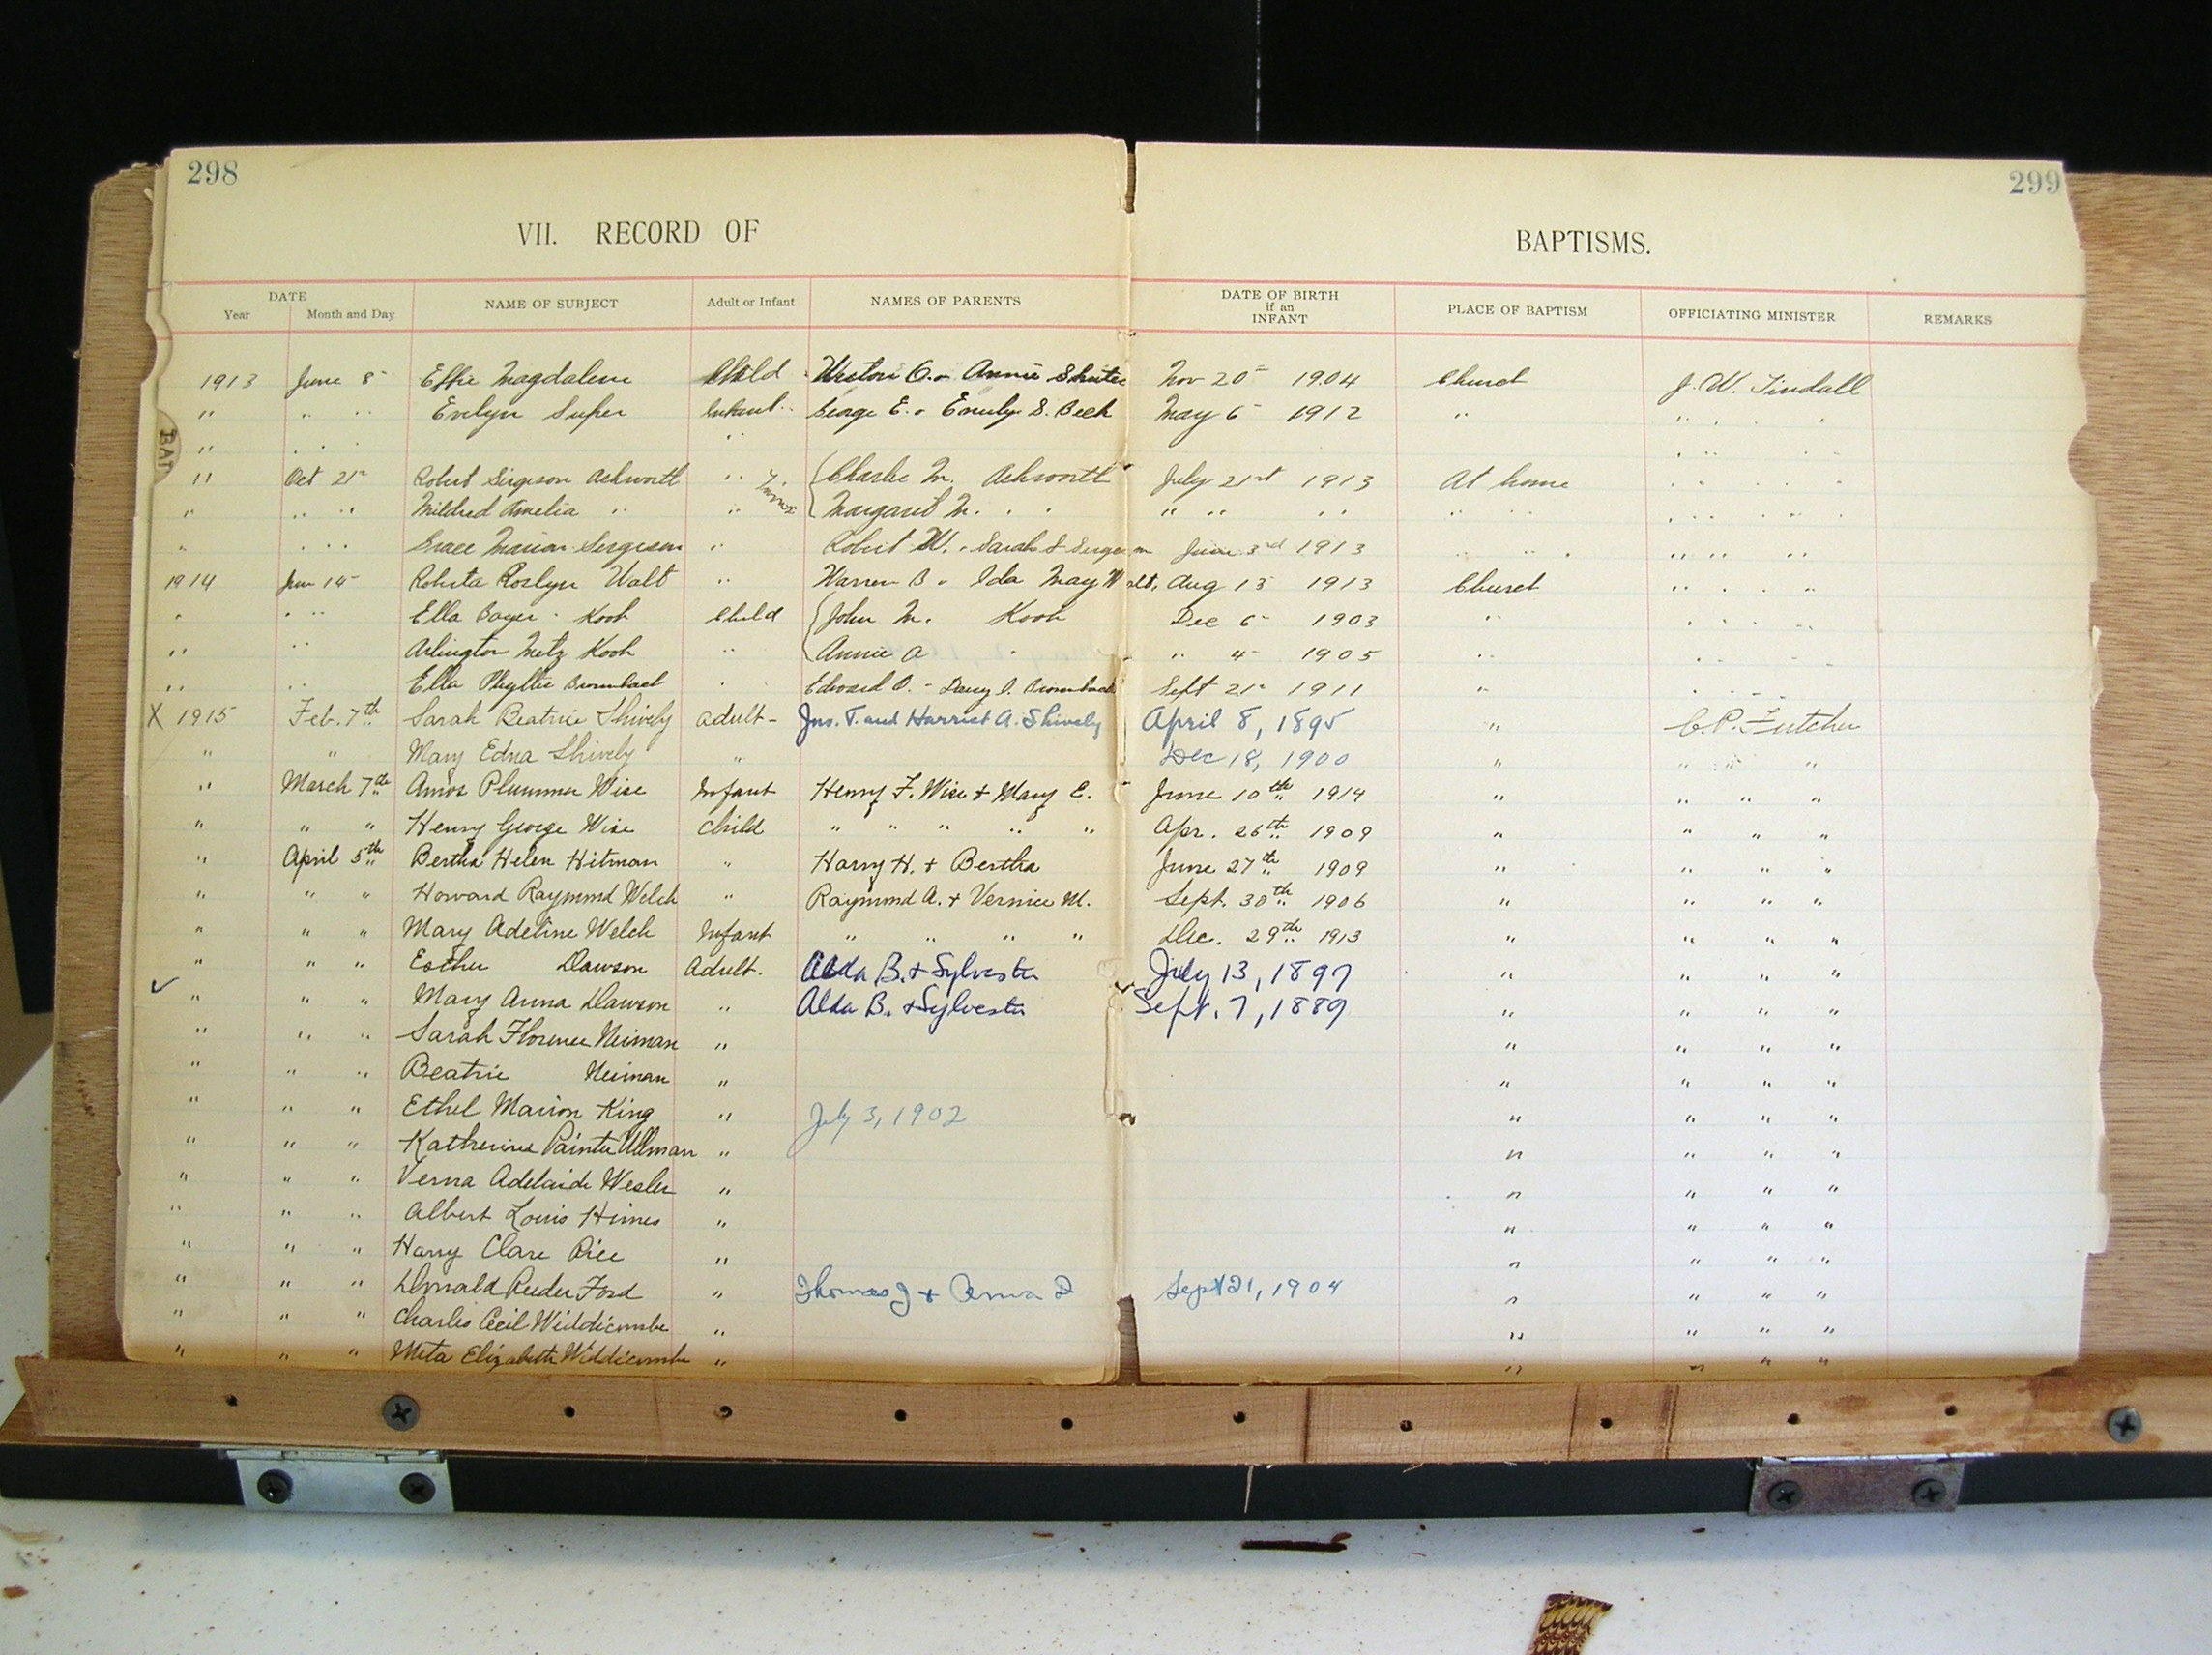 298 299
VII. RECORD OF BAPTISMS.
DATE
Year Month and Day NAME OF SUBJECT Adult or Infant NAMES OF PARENTS DATE OF BIRTH if an INFANT PLACE OF BAPTISM OFFICIATING MINISTER REMARKS
BAP
1913 June 8 Effie Magdalene Child Annie Nov 20 1904 Church J. W. Tindall
" " " Evelyn Infant George E. & Emily S. Beck May 6 1912 " " " "
" " " " " " "
" Oct 21 Robert Ashworth " Twins { Charlie M. Ashworth July 21st 1913 At home " " "
" " " Mildred Amelia " " { Margaret M. " " " " " " " " " " "
" " " Grace Marion Sergeson " Robert W. & Sarah Sergeson June 3rd 1913 " " " " " "
1914 14 Roberta Roslyn Walt " Warren B & Ida May Walt, Aug 13 1913 Church " " "
" " " Ella Koch Child { John M. Koch Dec 6 1903 " " " "
" " " Arlington Metz Koch " { Annie A " " 4 1905 " " " "
" " " Ella Phyllis " Edward Sept 21 1911 " " " "
X 1915 Feb. 7th Sarah Beatrice Shively adult - Jno. T. and Harriet A. Shively April 8, 1895 " C. P. Futcher
" " Mary Edna Shively " Dec 18, 1900 " " " "
" March 7th Amos Plummer Wise Infant Henry F. Wise + Mary E. June 10th 1914 " " " "
" " " Henry George Wise Child " " " " " Apr. 26th 1909 " " " "
" April 5th Bertha Helen Hitman " Harry H. + Bertha June 27th 1909 " " " "
" " " Howard Raymond Welch " Raymond A. + Vernice M. Sept. 30th 1906 " " " "
" " " Mary Adeline Welch Infant " " " " Dec. 29th 1913 " " " "
" " " Esther Dawson Adult. Alda B. + Sylvester July 13, 1897 " " " "
✓ " " " Mary Anna Dawson " Alda B. + Sylvester Sept. 7, 1889 " " " "
" " " Sarah Florence Neiman " " " " "
" " " Beatrice Neiman " " " " "
" " " Ethel Marion King " July 3, 1902 " " " "
" " " Katherine Painter Ullman " " " " "
" " " Verna Adelaide Wesler " " " " "
" " " Albert Louis Himes " " " " "
" " " Harry Clare Rice " " " " "
" " " Donald Reeder Ford " Thomas J + Anna D Sept 21, 1904 " " " "
" " " Charles Cecil Widdicombe " " " " "
" " " Meta Elizabeth Widdicombe " " " " "